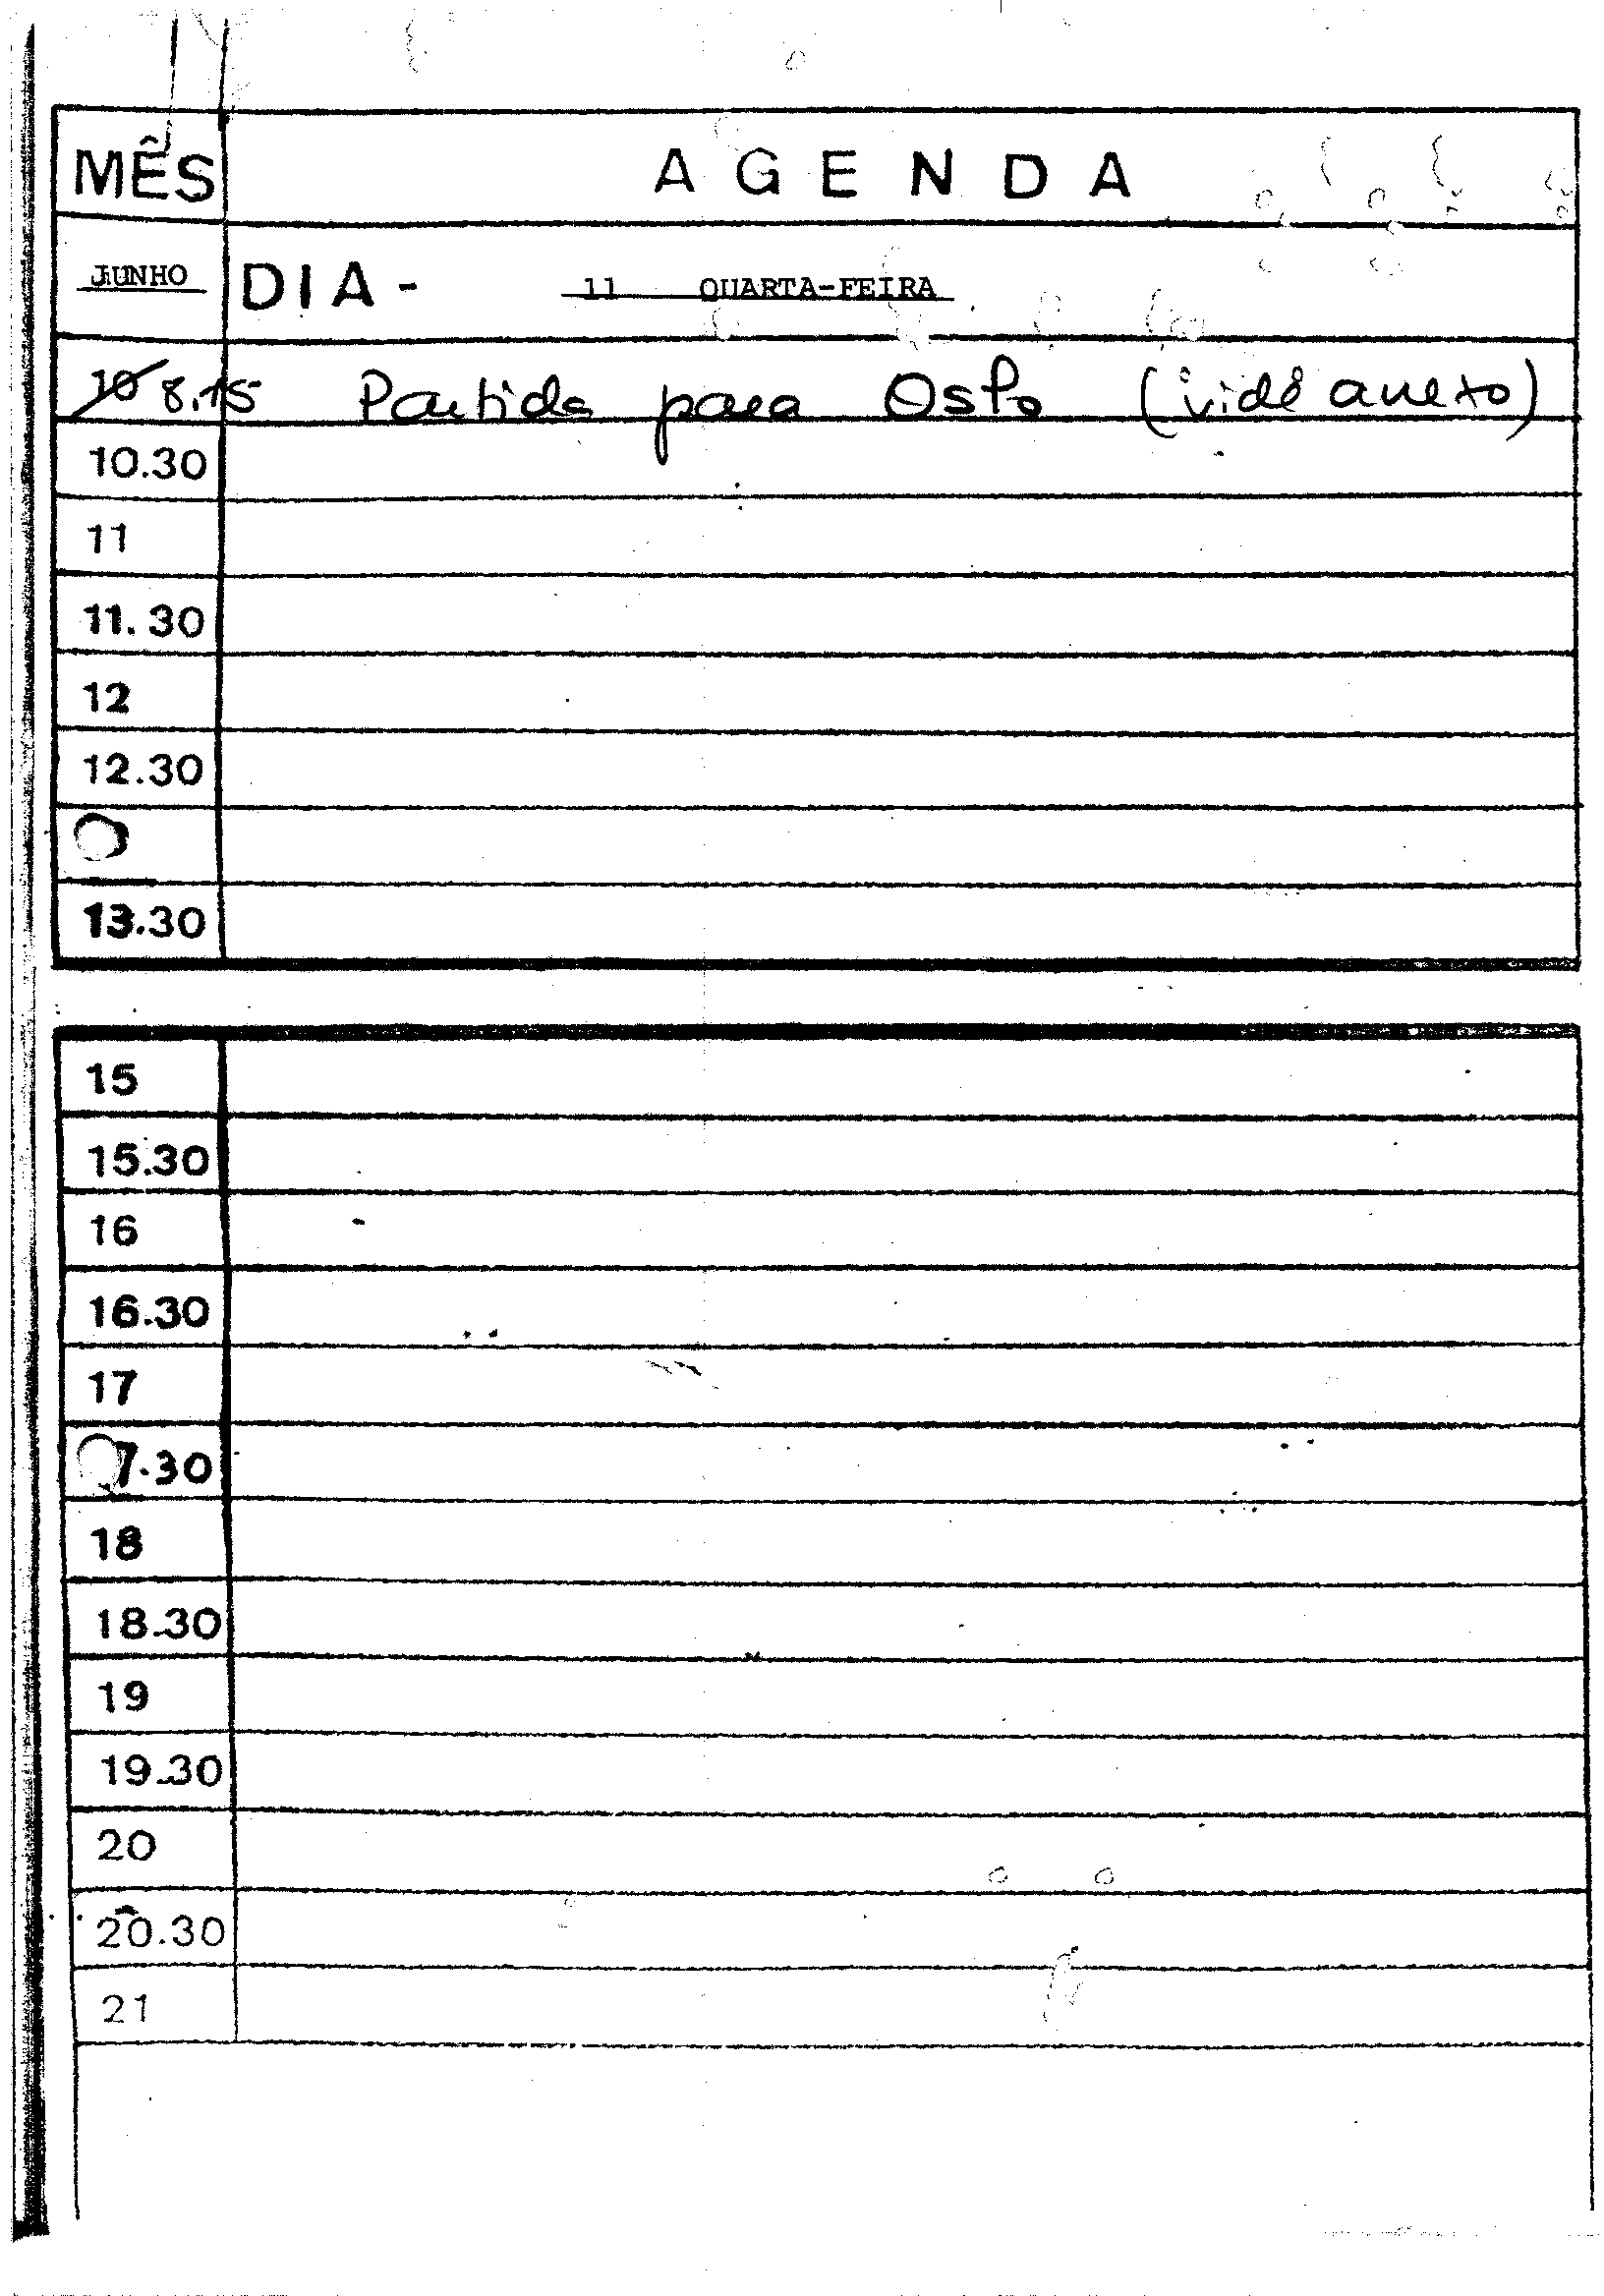 MÊS AGENDA
JUNHO DIA - 11 QUARTA-FEIRA
10 8.15 Partida para Oslo (vidé anexo)
10.30
11
11.30
12
12.30
13.30
15
15.30
16
16.30
17
7.30
18
18.30
19
19.30
20
20.30
21